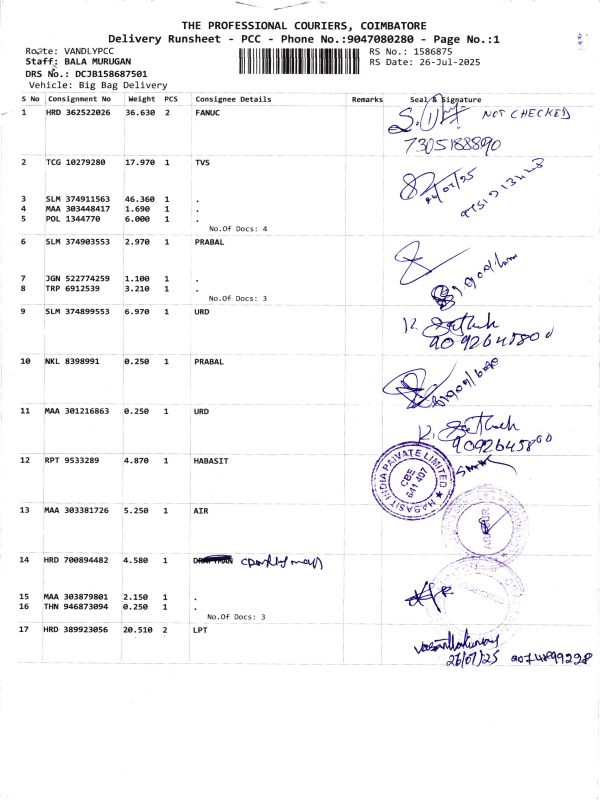 THE PROFESSIONAL COURIERS, COIMBATORE
Delivery Runsheet - PCC - Phone No.:9047080280 - Page No.:1
Route: VANDLYPCC RS No.: 1586875
Staff: BALA MURUGAN RS Date: 26-Jul-2025
DRS No.: DCJB158687501
Vehicle: Big Bag Delivery
S No Consignment No Weight PCS Consignee Details Remarks Seal & Signature
1 HRD 362522026 36.630 2 FANUC NOT CHECKED
7305188890
2 TCG 10279280 17.970 1 TVS
3 SLM 374911563 46.360 1 .
4 MAA 303448417 1.690 1 .
5 POL 1344770 6.000 1 .
No.Of Docs: 4
6 SLM 374903553 2.970 1 PRABAL
7 JGN 522774259 1.100 1 .
8 TRP 6912539 3.210 1 .
No.Of Docs: 3
9 SLM 374899553 6.970 1 URD
9092645800
10 NKL 8398991 0.250 1 PRABAL
11 MAA 301216863 0.250 1 URD
9092645800
12 RPT 9533289 4.870 1 HABASIT
HABASIT INDIA PRIVATE LIMITED
CBE
641 407
13 MAA 303381726 5.250 1 AIR
14 HRD 700894482 4.580 1
15 MAA 303879801 2.150 1 .
16 THN 946873094 0.250 1 .
No.Of Docs: 3
17 HRD 389923056 20.510 2 LPT
26/07/25